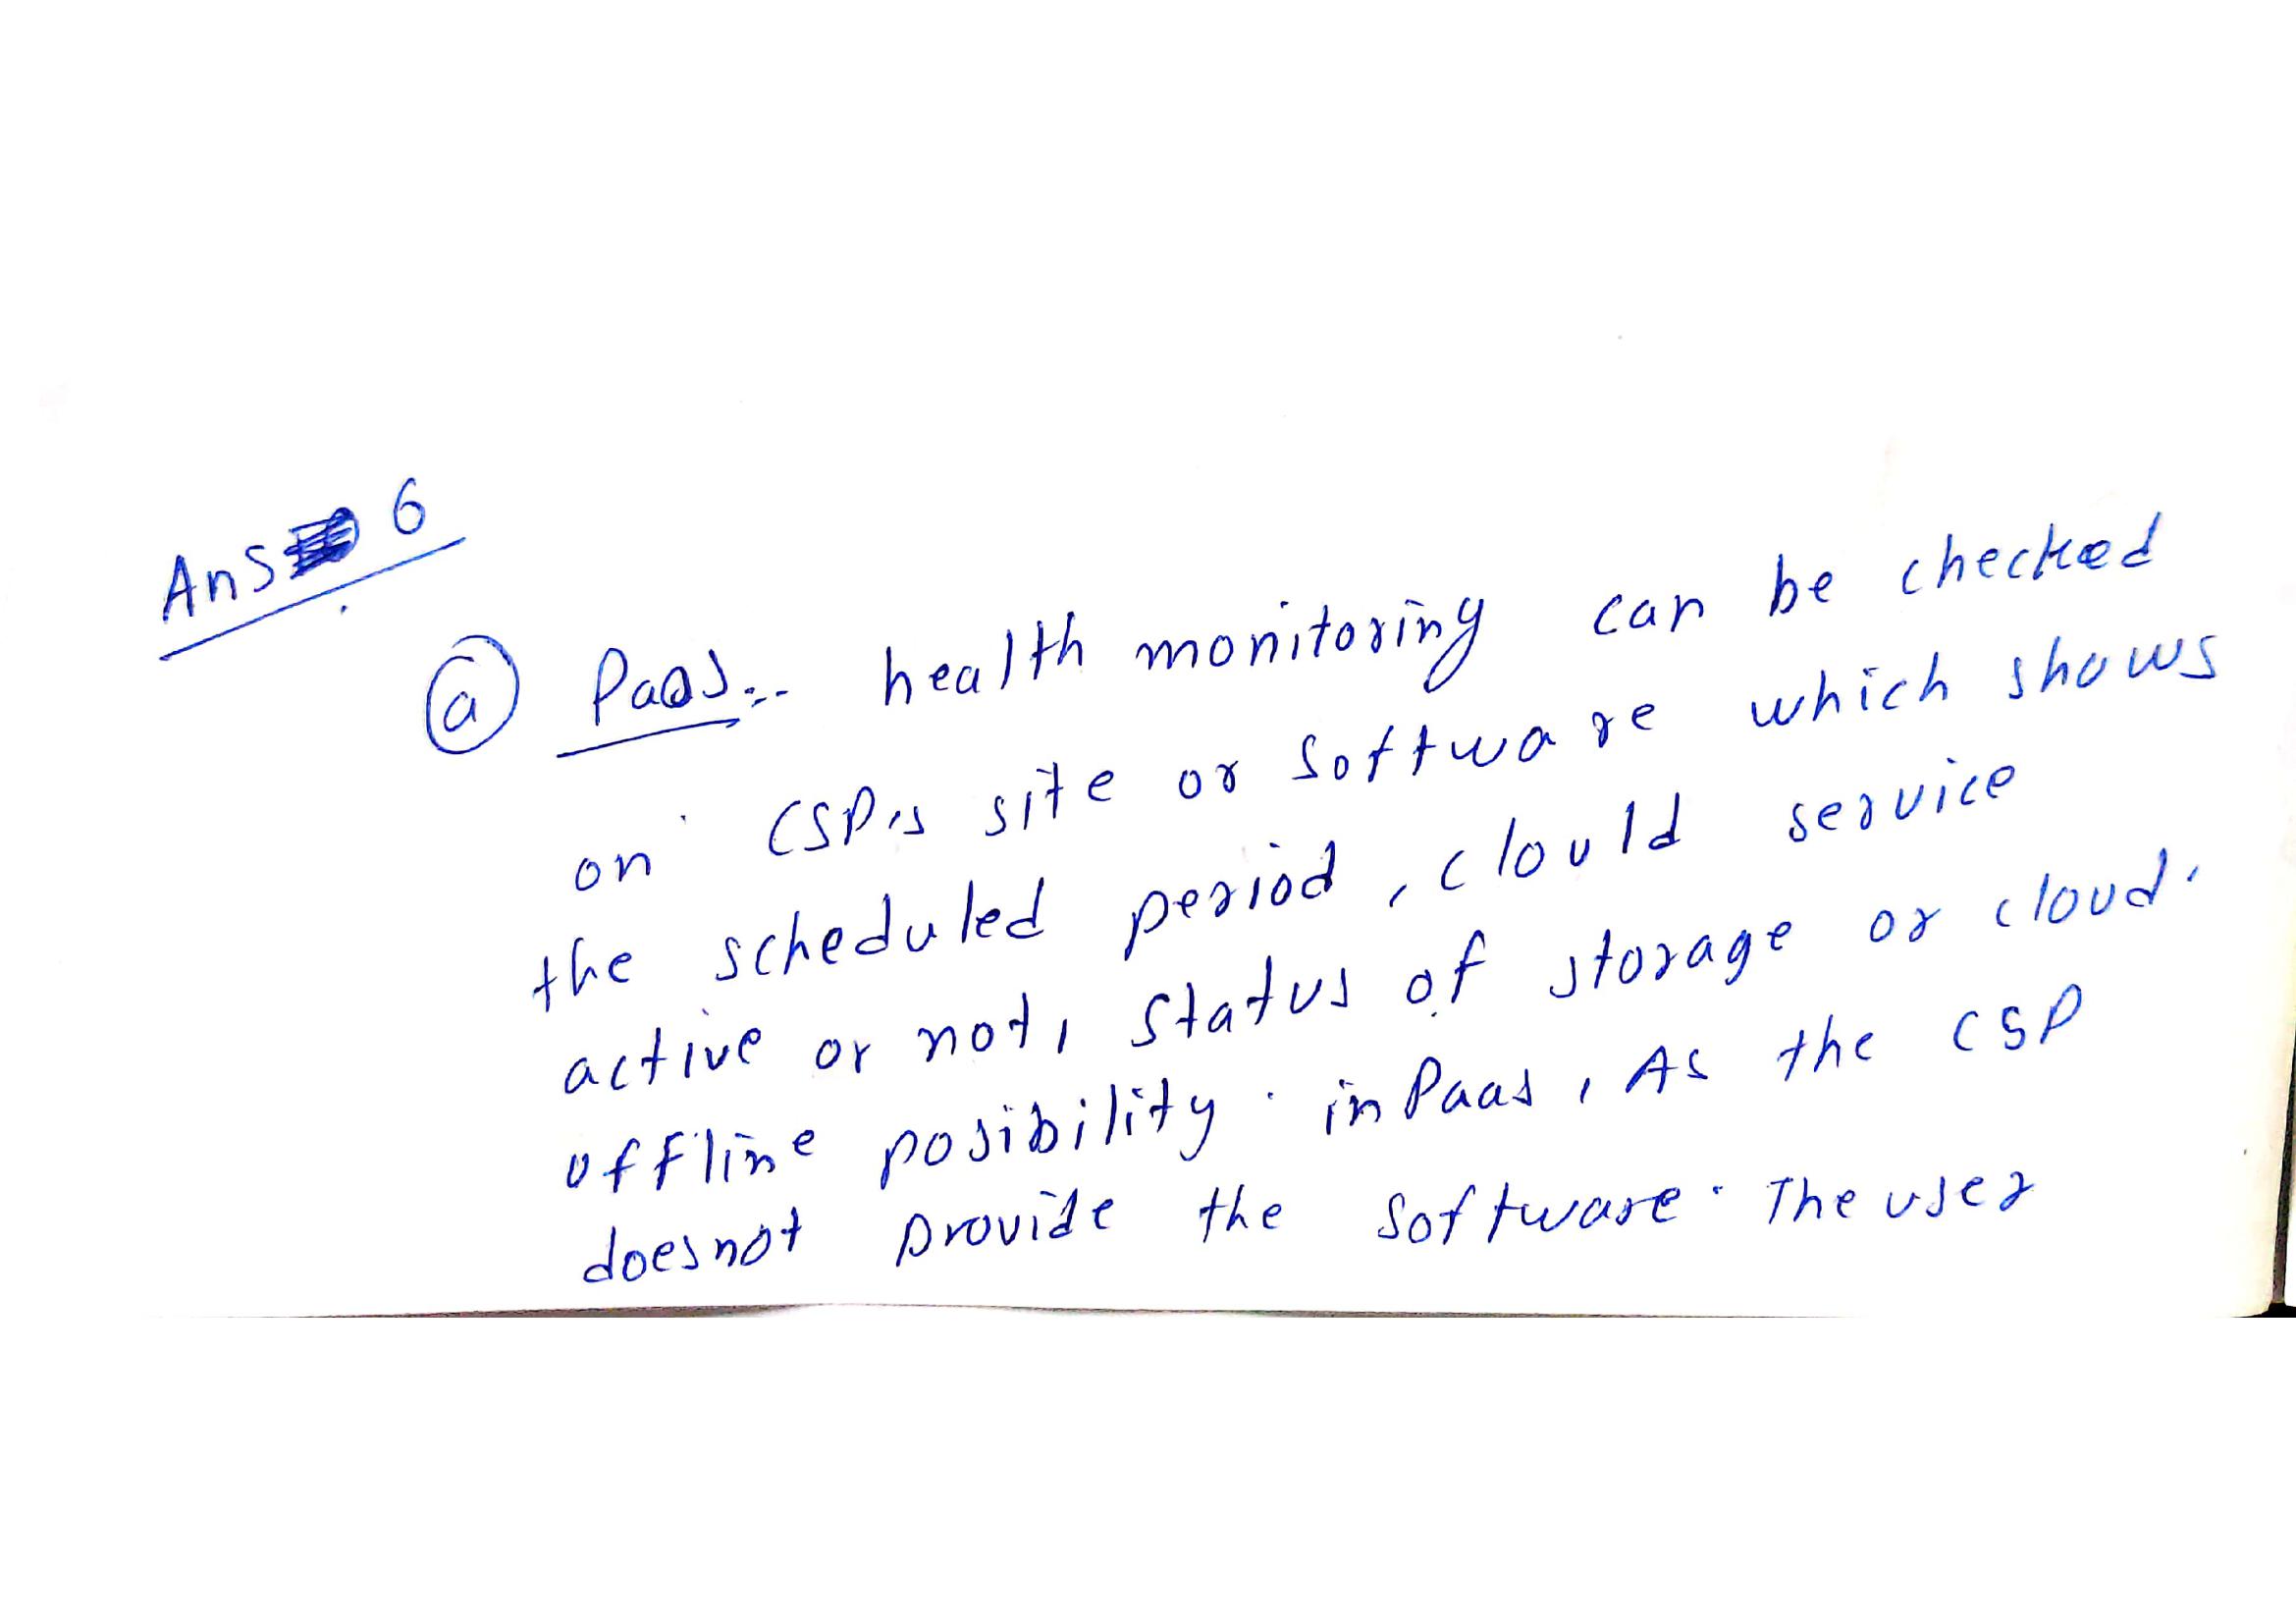 Ans 6
(a) Paas :- health monitoring can be checked
on CSP's site or software which shows
the scheduled period, clould service
active or not, status of storage or cloud.
offline posibility. in Paas, As the CSP
does not provide the software. The user